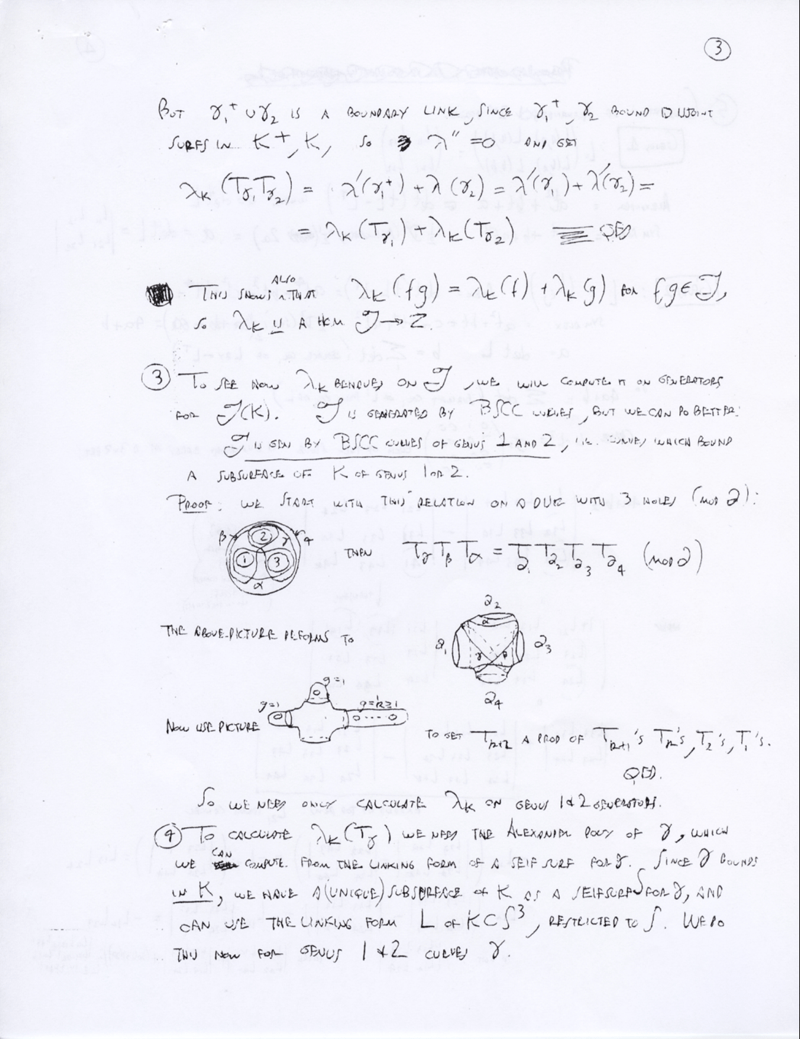 ③
BUT γ₁⁺ ∪ γ₂ IS A BOUNDARY LINK, SINCE γ₁⁺, γ₂ BOUND DISJOINT
SURFS IN K⁺, K, SO λ″ = 0 AND GET
λ_K (T_γ₁ T_γ₂) = λ′(γ₁⁺) + λ′(γ₂) = λ′(γ₁) + λ′(γ₂) =
= λ_K (T_γ₁) + λ_K (T_γ₂) QED
THIS SHOWS ALSO THAT λ_K (fg) = λ_K (f) + λ_K (g) FOR f, g ∈ 𝒯,
SO λ_K IS A HOM 𝒯 → Z.
③ TO SEE HOW λ_K BEHAVES ON 𝒯, WE WILL COMPUTE IT ON GENERATORS
FOR 𝒯(K). 𝒯 IS GENERATED BY BSCC CURVES, BUT WE CAN DO BETTER:
𝒯 IS GEN BY BSCC CURVES OF GENUS 1 AND 2, i.e. CURVES WHICH BOUND
A SUBSURFACE OF K OF GENUS 1 OR 2.
PROOF: WE START WITH THIS RELATION ON A DISK WITH 3 HOLES (MOD ∂):
β 2 γ 4
1 3
α
THEN T_γ T_β T_α = T_∂₁ T_∂₂ T_∂₃ T_∂₄ (MOD ∂)
THE ABOVE PICTURE DEFORMS TO
∂₂
α
∂₁ γ β ∂₃
∂₄
g=1
g=1 g=k≥1
NOW USE PICTURE TO GET T_k+2 A PROD OF T_k+1's T_k's, T₂'s, T₁'s.
QED.
SO WE NEED ONLY CALCULATE λ_K ON GENUS 1 & 2 GENERATORS.
④ TO CALCULATE λ_K (T_γ) WE NEED THE ALEXANDER POLY OF γ, WHICH
WE CAN COMPUTE FROM THE LINKING FORM OF A SEIF SURF FOR γ. SINCE γ BOUNDS
IN K, WE HAVE A (UNIQUE) SUBSURFACE OF K AS A SEIF SURF S FOR γ, AND
CAN USE THE LINKING FORM L OF K ⊂ S³, RESTRICTED TO S. WE DO
THIS NOW FOR GENUS 1 & 2 CURVES γ.